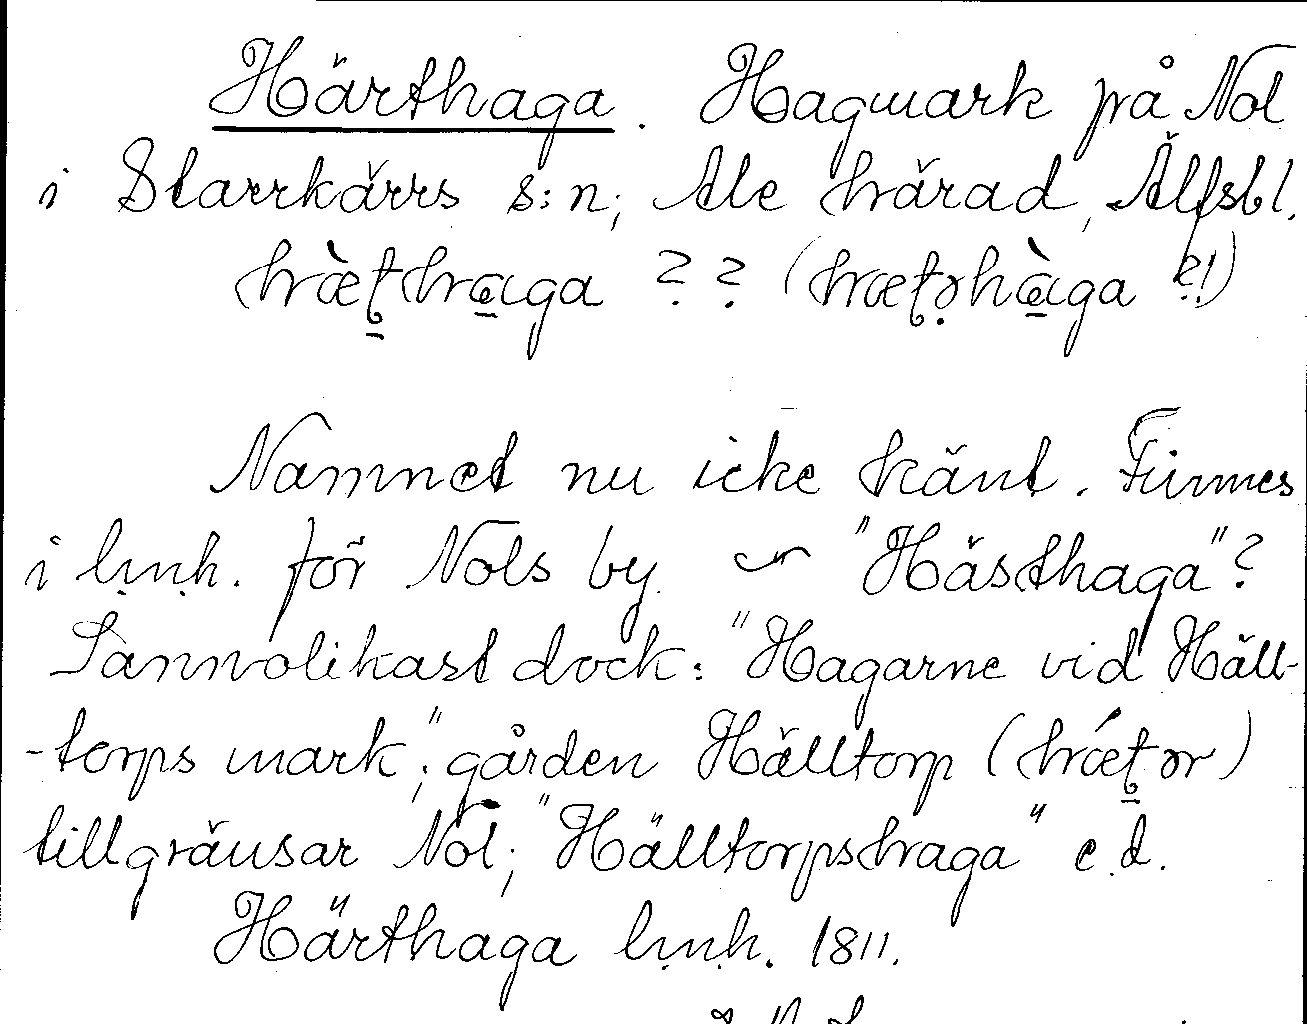 Härthaga. Hagmark på Nol
i Starrkärrs s:n, Ale härad, Älfsbl.
hæ̀thaga ?? (hætərhàga ?!)
Namnet nu icke känt. Finnes
i l.m.h. för Nols by ~ "Hästhaga"?
Sannolikast dock: "Hagarne vid Häll-
-torps mark", gården Hälltorp (hǽtər)
tillgränsar Nol; "Hälltorpshaga" e.d.
Härthaga l.m.h. 1811.